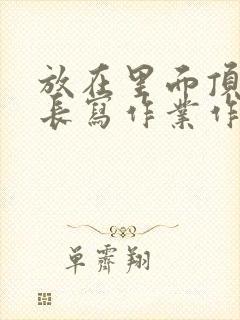 放在里而頂
長寫作業作
单霽翔